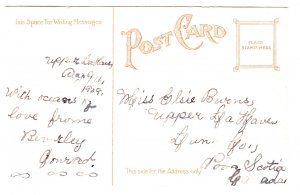 This Space For Writing Messages
POST CARD
PLACE
STAMP HERE
Upper LaHave
1909.
With oceans of
love from
Beverley
Miss Elsie Burns,
Upper La Have
Lun. Co.,
Nova Scotia
Canada
This side for the Address only